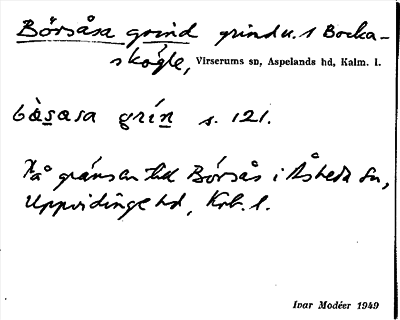 Börsåsa grind grind u. 1 Bocka-
skógle, Virserums sn, Aspelands hd, Kalm. l.
bàsasa grín s. 121.
På gränsen till Börsås i Åsheda sn,
Uppvidinge hd, Krb. l.
Ivar Modéer 1949